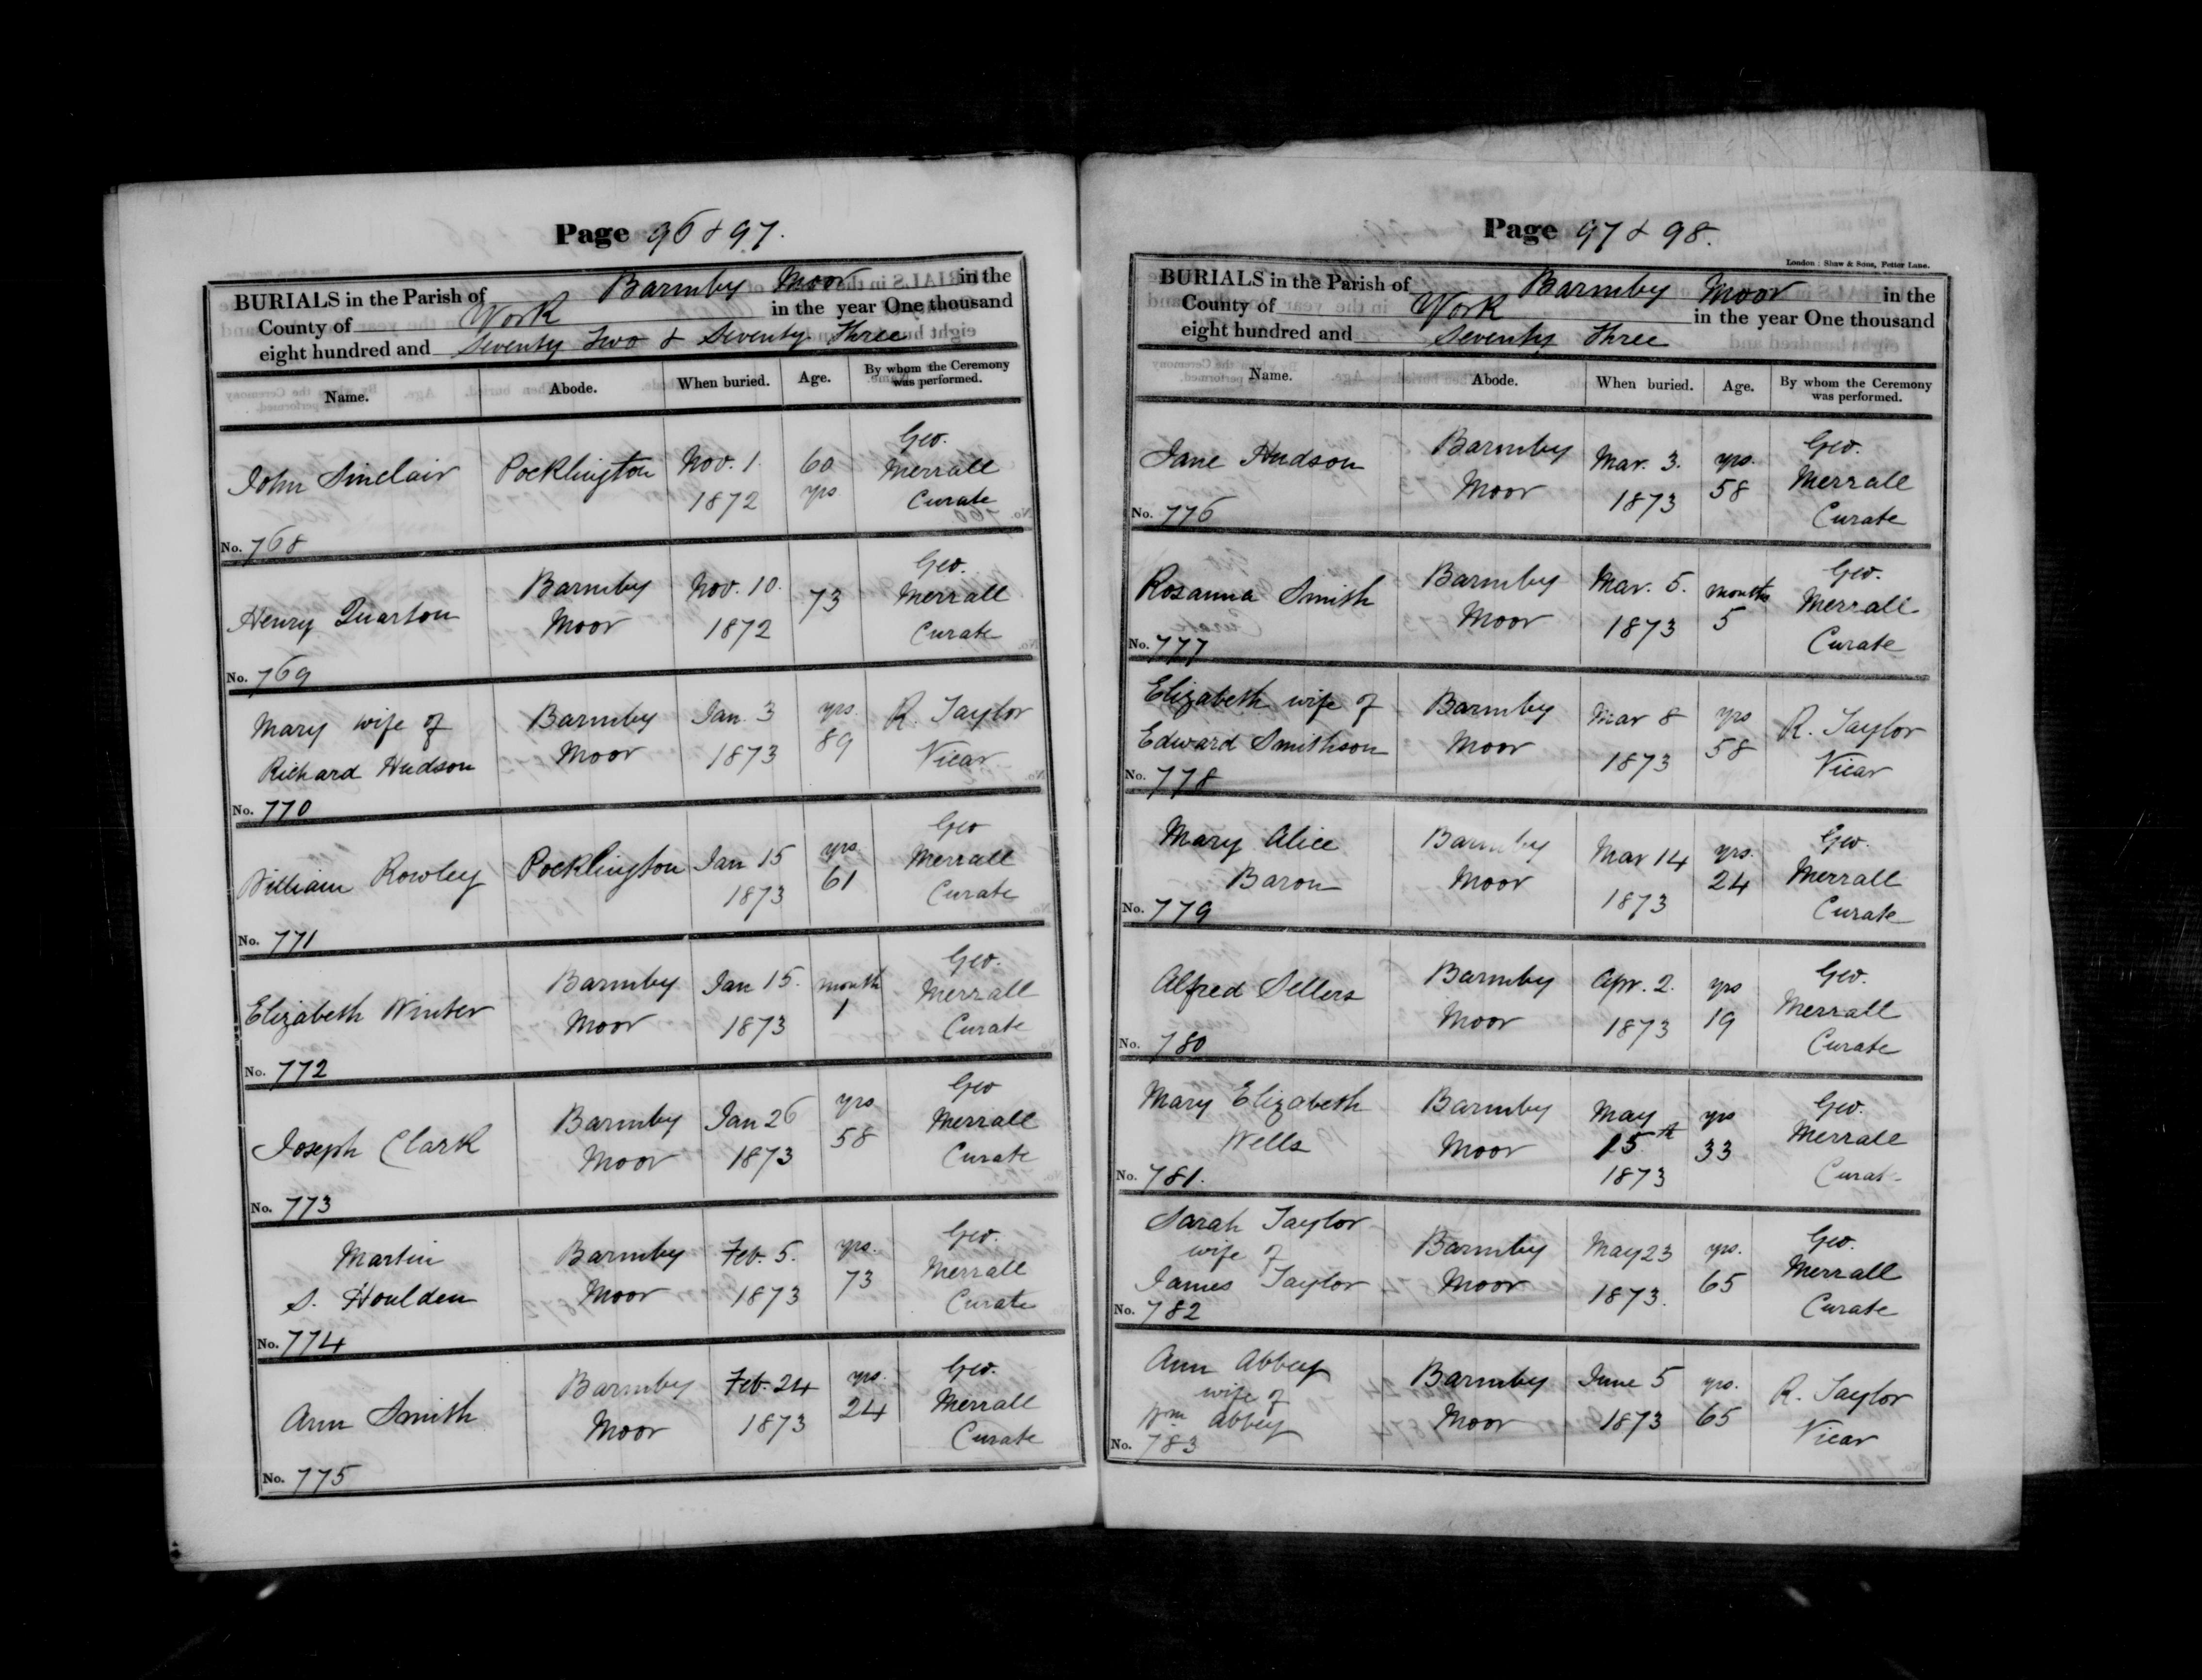 Page 96 & 97.
BURIALS in the Parish of Barmby Moor in the
County of York in the year One thousand
eight hundred and Seventy Two & Seventy Three
Name. Abode. When buried. Age. By whom the Ceremony was performed.
John Sinclair Pocklington Nov. 1. 1872 60 yrs Geo. Merrall Curate
No. 768
Henry Quarton Barmby Moor Nov. 10. 1872 73 Geo. Merrall Curate
No. 769
Mary wife of Richard Hudson Barmby Moor Jan. 3 1873 yrs. 89 R. Taylor Vicar
No. 770
William Rowley Pocklington Jan 15 1873 yrs. 61 Geo Merrall Curate
No. 771
Elizabeth Winter Barmby Moor Jan 15. 1873 month 1 Geo. Merrall Curate
No. 772
Joseph Clark Barmby Moor Jan 26 1873 yrs 58 Geo Merrall Curate
No. 773
Martin S. Houlden Barmby Moor Feb. 5. 1873 yrs. 73 Geo. Merrall Curate
No. 774
Ann Smith Barmby Moor Feb. 24 1873 yrs. 24 Geo. Merrall Curate
No. 775
Page 97 & 98.
London: Shaw & Sons, Fetter Lane.
BURIALS in the Parish of Barmby Moor in the
County of York in the year One thousand
eight hundred and Seventy Three
Name. Abode. When buried. Age. By whom the Ceremony was performed.
Jane Hudson Barmby Moor Mar. 3. 1873 yrs. 58 Geo. Merrall Curate
No. 776
Rosanna Smith Barmby Moor Mar. 5. 1873 months 5 Geo. Merrall Curate
No. 777
Elizabeth wife of Edward Smithson Barmby Moor Mar 8 1873 yrs 58 R. Taylor Vicar
No. 778
Mary Alice Baron Barmby Moor Mar 14 1873 yrs. 24 Geo. Merrall Curate
No. 779
Alfred Sellers Barmby Moor Apr. 2. 1873 yrs 19 Geo. Merrall Curate
No. 780
Mary Elizabeth Wells Barmby Moor May 15th 1873 yrs 33 Geo. Merrall Curate
No. 781.
Sarah Taylor wife of James Taylor Barmby Moor May 23 1873. yrs. 65 Geo. Merrall Curate
No. 782
Ann Abbey wife of Wm Abbey Barmby Moor June 5 1873 yrs. 65 R. Taylor Vicar
No. 783